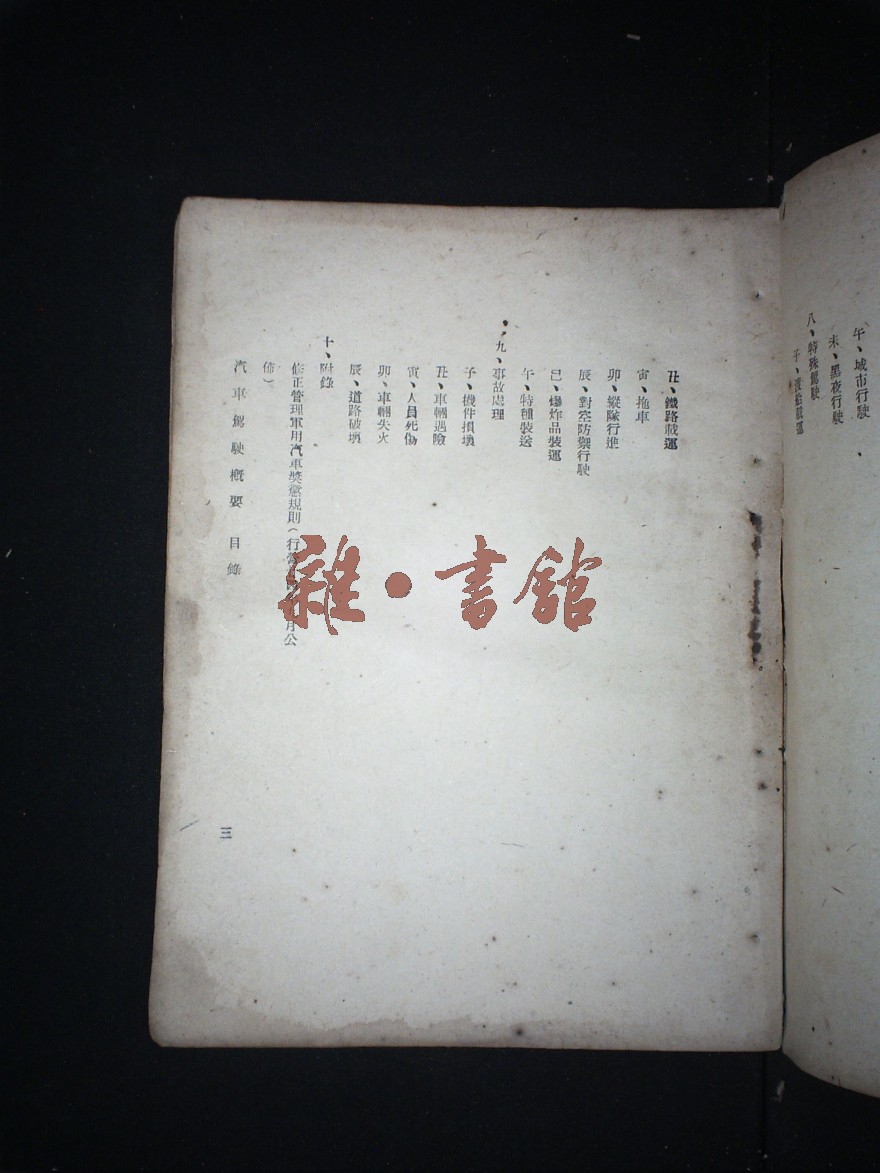 午、城市行駛
未、黑夜行駛
八、特殊駕駛
子、渡船載運
丑、鐵路載運
寅、拖車
卯、縱隊行進
辰、對空防禦行駛
巳、爆炸品裝運
午、特種裝送
九、事故處理
子、機件損壞
丑、車輛遇險
寅、人員死傷
卯、車輛失火
辰、道路破壞
十、附錄
修正管理軍用汽車獎懲規則（行營 月公
佈）
汽車駕駛概要 目錄
三
雜·書館